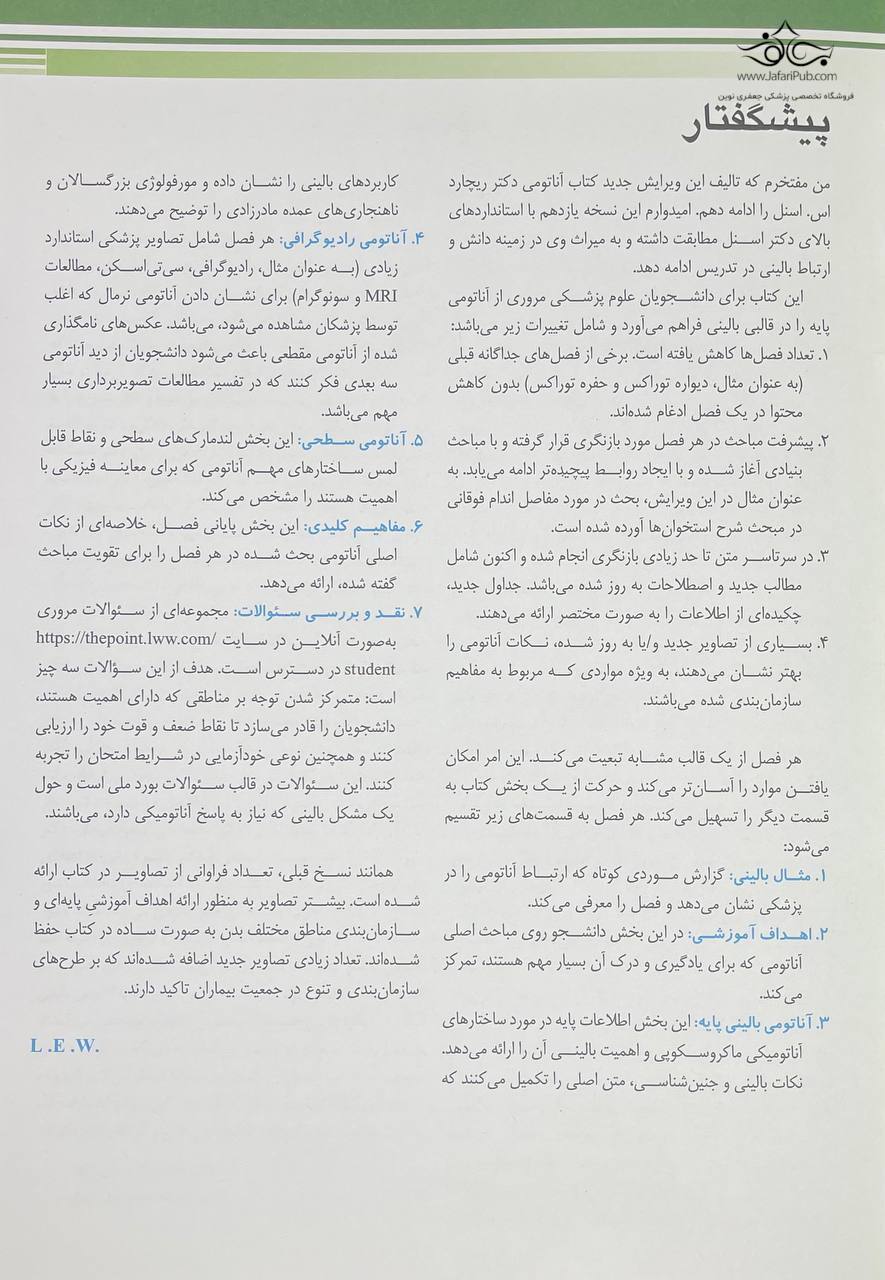 www.JafariPub.com
فروشگاه تخصصی پزشکی جعفری نوین
پیشگفتار
من مفتخرم که تالیف این ویرایش جدید کتاب آناتومی دکتر ریچارد
اس. اسنل را ادامه دهم. امیدوارم این نسخه یازدهم با استانداردهای
بالای دکتر اسنل مطابقت داشته و به میراث وی در زمینه دانش و
ارتباط بالینی در تدریس ادامه دهد.
این کتاب برای دانشجویان علوم پزشکی مروری از آناتومی
پایه را در قالبی بالینی فراهم می‌آورد و شامل تغییرات زیر می‌باشد:
۱. تعداد فصل‌ها کاهش یافته است. برخی از فصل‌های جداگانه قبلی
(به عنوان مثال، دیواره توراکس و حفره توراکس) بدون کاهش
محتوا در یک فصل ادغام شده‌اند.
۲. پیشرفت مباحث در هر فصل مورد بازنگری قرار گرفته و با مباحث
بنیادی آغاز شده و با ایجاد روابط پیچیده‌تر ادامه می‌یابد. به
عنوان مثال در این ویرایش، بحث در مورد مفاصل اندام فوقانی
در مبحث شرح استخوان‌ها آورده شده است.
۳. در سرتاسر متن تا حد زیادی بازنگری انجام شده و اکنون شامل
مطالب جدید و اصطلاحات به روز شده می‌باشد. جداول جدید،
چکیده‌ای از اطلاعات را به صورت مختصر ارائه می‌دهند.
۴. بسیاری از تصاویر جدید و/یا به روز شده، نکات آناتومی را
بهتر نشان می‌دهند، به ویژه مواردی که مربوط به مفاهیم
سازمان‌بندی شده می‌باشند.
هر فصل از یک قالب مشابه تبعیت می‌کند. این امر امکان
یافتن موارد را آسان‌تر می‌کند و حرکت از یک بخش کتاب به
قسمت دیگر را تسهیل می‌کند. هر فصل به قسمت‌های زیر تقسیم
می‌شود:
۱. مثال بالینی: گزارش موردی کوتاه که ارتباط آناتومی را در
پزشکی نشان می‌دهد و فصل را معرفی می‌کند.
۲. اهداف آموزشی: در این بخش دانشجو روی مباحث اصلی
آناتومی که برای یادگیری و درک آن بسیار مهم هستند، تمرکز
می‌کند.
۳. آناتومی بالینی پایه: این بخش اطلاعات پایه در مورد ساختارهای
آناتومیکی ماکروسکوپی و اهمیت بالینی آن را ارائه می‌دهد.
نکات بالینی و جنین‌شناسی، متن اصلی را تکمیل می‌کنند که
کاربردهای بالینی را نشان داده و مورفولوژی بزرگسالان و
ناهنجاری‌های عمده مادرزادی را توضیح می‌دهند.
۴. آناتومی رادیوگرافی: هر فصل شامل تصاویر پزشکی استاندارد
زیادی (به عنوان مثال، رادیوگرافی، سی‌تی‌اسکن، مطالعات
MRI و سونوگرام) برای نشان دادن آناتومی نرمال که اغلب
توسط پزشکان مشاهده می‌شود، می‌باشد. عکس‌های نامگذاری
شده از آناتومی مقطعی باعث می‌شود دانشجویان از دید آناتومی
سه بعدی فکر کنند که در تفسیر مطالعات تصویربرداری بسیار
مهم می‌باشد.
۵. آناتومی سطحی: این بخش لندمارک‌های سطحی و نقاط قابل
لمس ساختارهای مهم آناتومی که برای معاینه فیزیکی با
اهمیت هستند را مشخص می‌کند.
۶. مفاهیم کلیدی: این بخش پایانی فصل، خلاصه‌ای از نکات
اصلی آناتومی بحث شده در هر فصل را برای تقویت مباحث
گفته شده، ارائه می‌دهد.
۷. نقد و بررسی سئوالات: مجموعه‌ای از سئوالات مروری
به‌صورت آنلاین در سایت https://thepoint.lww.com/
student در دسترس است. هدف از این سؤالات سه چیز
است: متمرکز شدن توجه بر مناطقی که دارای اهمیت هستند،
دانشجویان را قادر می‌سازد تا نقاط ضعف و قوت خود را ارزیابی
کنند و همچنین نوعی خودآزمایی در شرایط امتحان را تجربه
کنند. این سئوالات در قالب سئوالات بورد ملی است و حول
یک مشکل بالینی که نیاز به پاسخ آناتومیکی دارد، می‌باشند.
همانند نسخ قبلی، تعداد فراوانی از تصاویر در کتاب ارائه
شده است. بیشتر تصاویر به منظور ارائه اهداف آموزشیِ پایه‌ای و
سازمان‌بندی مناطق مختلف بدن به صورت ساده در کتاب حفظ
شده‌اند. تعداد زیادی تصاویر جدید اضافه شده‌اند که بر طرح‌های
سازمان‌بندی و تنوع در جمعیت بیماران تاکید دارند.
L .E .W.